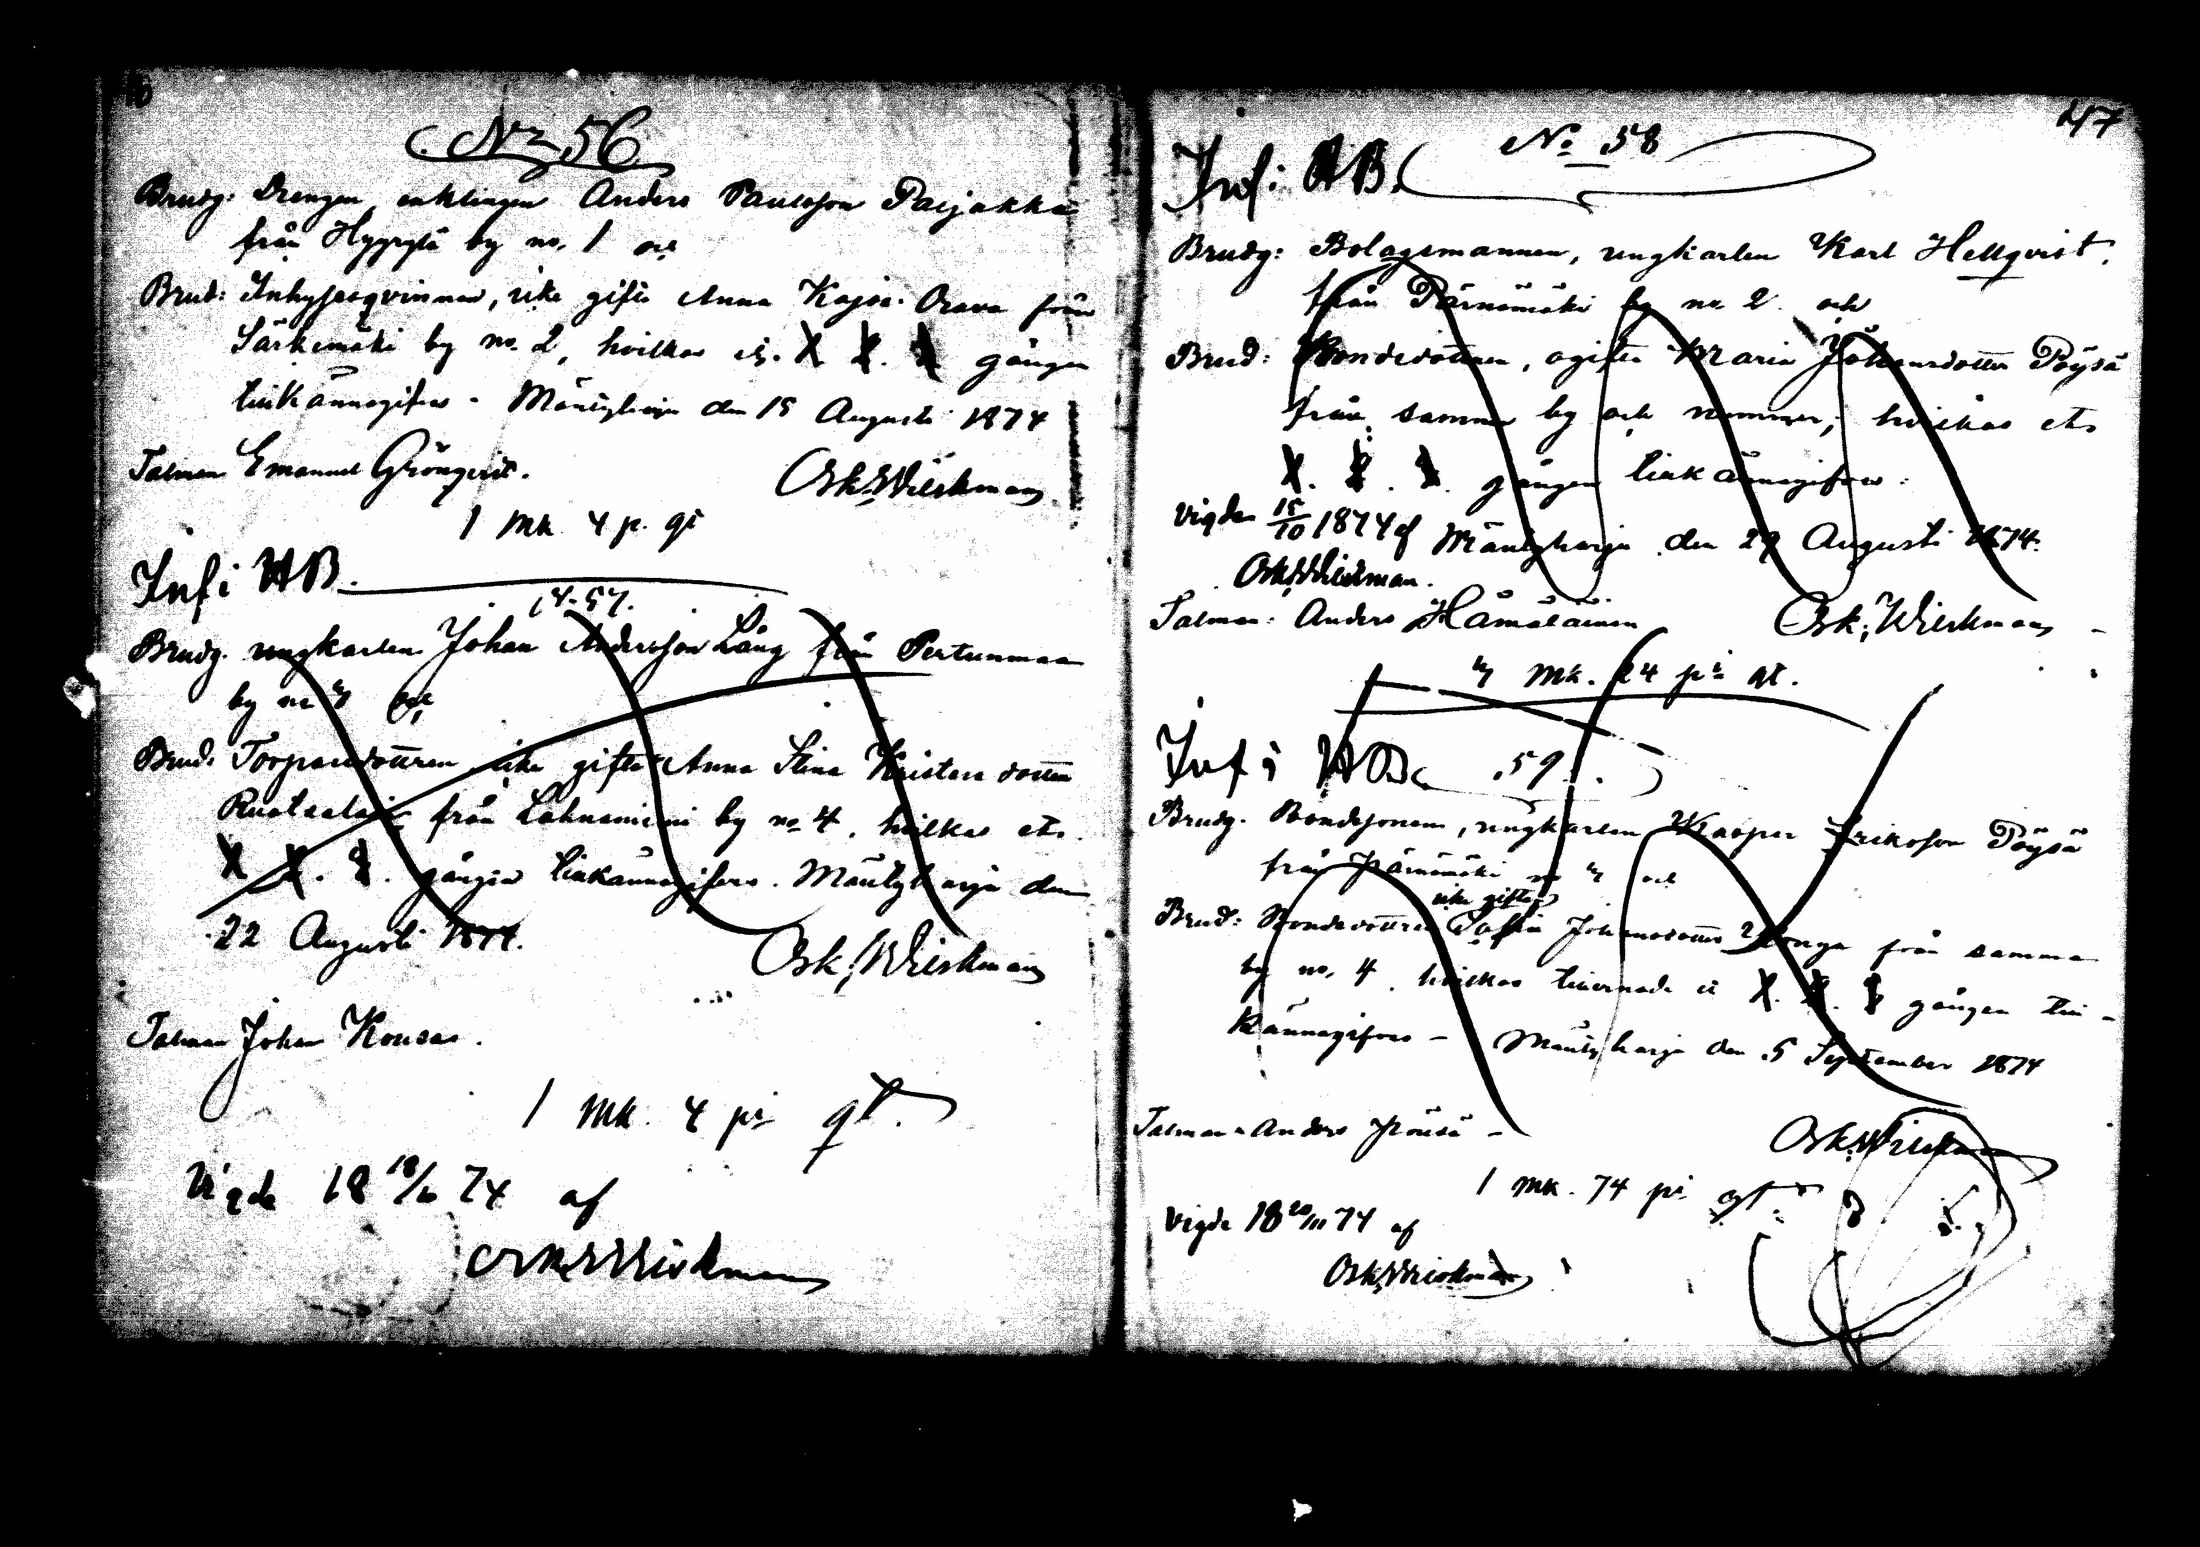 46
No 56
Brudg: Drengen, enklingen Anders Paulsson Paijakka
från Hyyrylä by no. 1 och
Brud: Inhysesqvinnan, icke gifta Anna Kajsa Orava från
Särkemäki by no. 2, hvilkas etc. X X. X gången
tillkännagifves - Mäntyharju den 15 Augusti 1874
Talman Emanuel Grönqvist.
Osk. Wilskman
1 mk. 4 p. gt
Inf i HB.
57.
Brudg. ungkarlen Johan Andersson Lång från Pertunmaa
by no 7 och
Brud: Torparedottren icke gifta Anna Stina Kristersdotter
från Lahnaniemi by no 4, hvilkas etc.
X X. X. gången tillkännagifves. Mäntyharju den
22 Augusti 1874.
Osk. Wilskman
Talman Johan Kousa.
1 mk. 4 pi gt.
Vigde 18 18/10 74 af
Osk. Wilskman
47
Inf i HB.
No 58
Brudg: Bolagsmannen, ungkarlen Karl Hellqvist.
från Pärnämäki by no 2. och
Brud: Bondedottren, ogifta Maria Johansdotter Pöysä
från samma by och nummer; hvilkas etc
X. X. X. gången tillkännagifves:
Vigde 15/10 1874 af
Mäntyharju den 29 Augusti 1874.
Osk. Wilskman.
Talman: Anders Hämäläinen
Osk. Wilskman
7 mk. 24 pi gt.
Inf i HB
59.
Brudg. Bondesonen, ungkarlen Kasper Eriksson Pöysä
från Pärnämäki no 7 och
icke gifta
Brud: Bondedottren Sofia Johansdotter från samma
by no. 4. hvilkas X. X. X gången till-
kännagifves - Mäntyharju den 5 September 1874
Talman Anders Pöysä -
Osk. Wilskman
1 mk. 74 pi gt.
Vigde 18 20/11 74 af
Osk. Wilskman